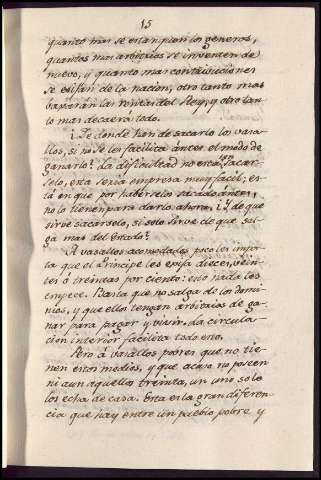 15
quanto mas se estanquen los generos,
quantos mas arbitrios se inventen de
nuevo, y quanto mas contribuciones
se exijan de la nacion, otro tanto mas
baxarán las rentas del Rey, y otro tan-
to mas decaerá todo.
¿De donde han de sacarlo los vasa-
llos, si no se les facilita ántes el modo de
ganarlo? La dificultad no está en sacar-
selo, esta seria empresa muy facil; es-
tá en que por haberselo sacado ántes,
no lo tienen para darlo ahora, ¿Y de que
sirve sacarselo, si solo sirve de que sal-
ga mas del Estado?
A vasallos acomodados poco les impor-
ta que el Principe les exija diez, vein-
te ó treinta por ciento: esto nada les
empece. Basta que no salga de los domi-
nios, y que ellos tengan arbitrios de ga-
nar para pagar y vivir. La circula-
cion interior facilita todo esto.
Pero á vasallos pobres que no tie-
nen estos medios, y que acaso no poseen
ni aun aquellos treinta, un uno solo
los echa de casa. Esta es la gran diferen-
cia que hay entre un pueblo pobre y